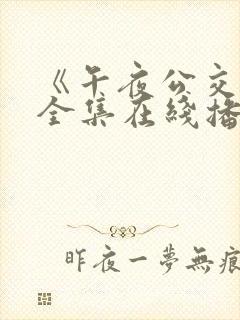 《午夜公交
全集在綫播
昨夜一夢無痕